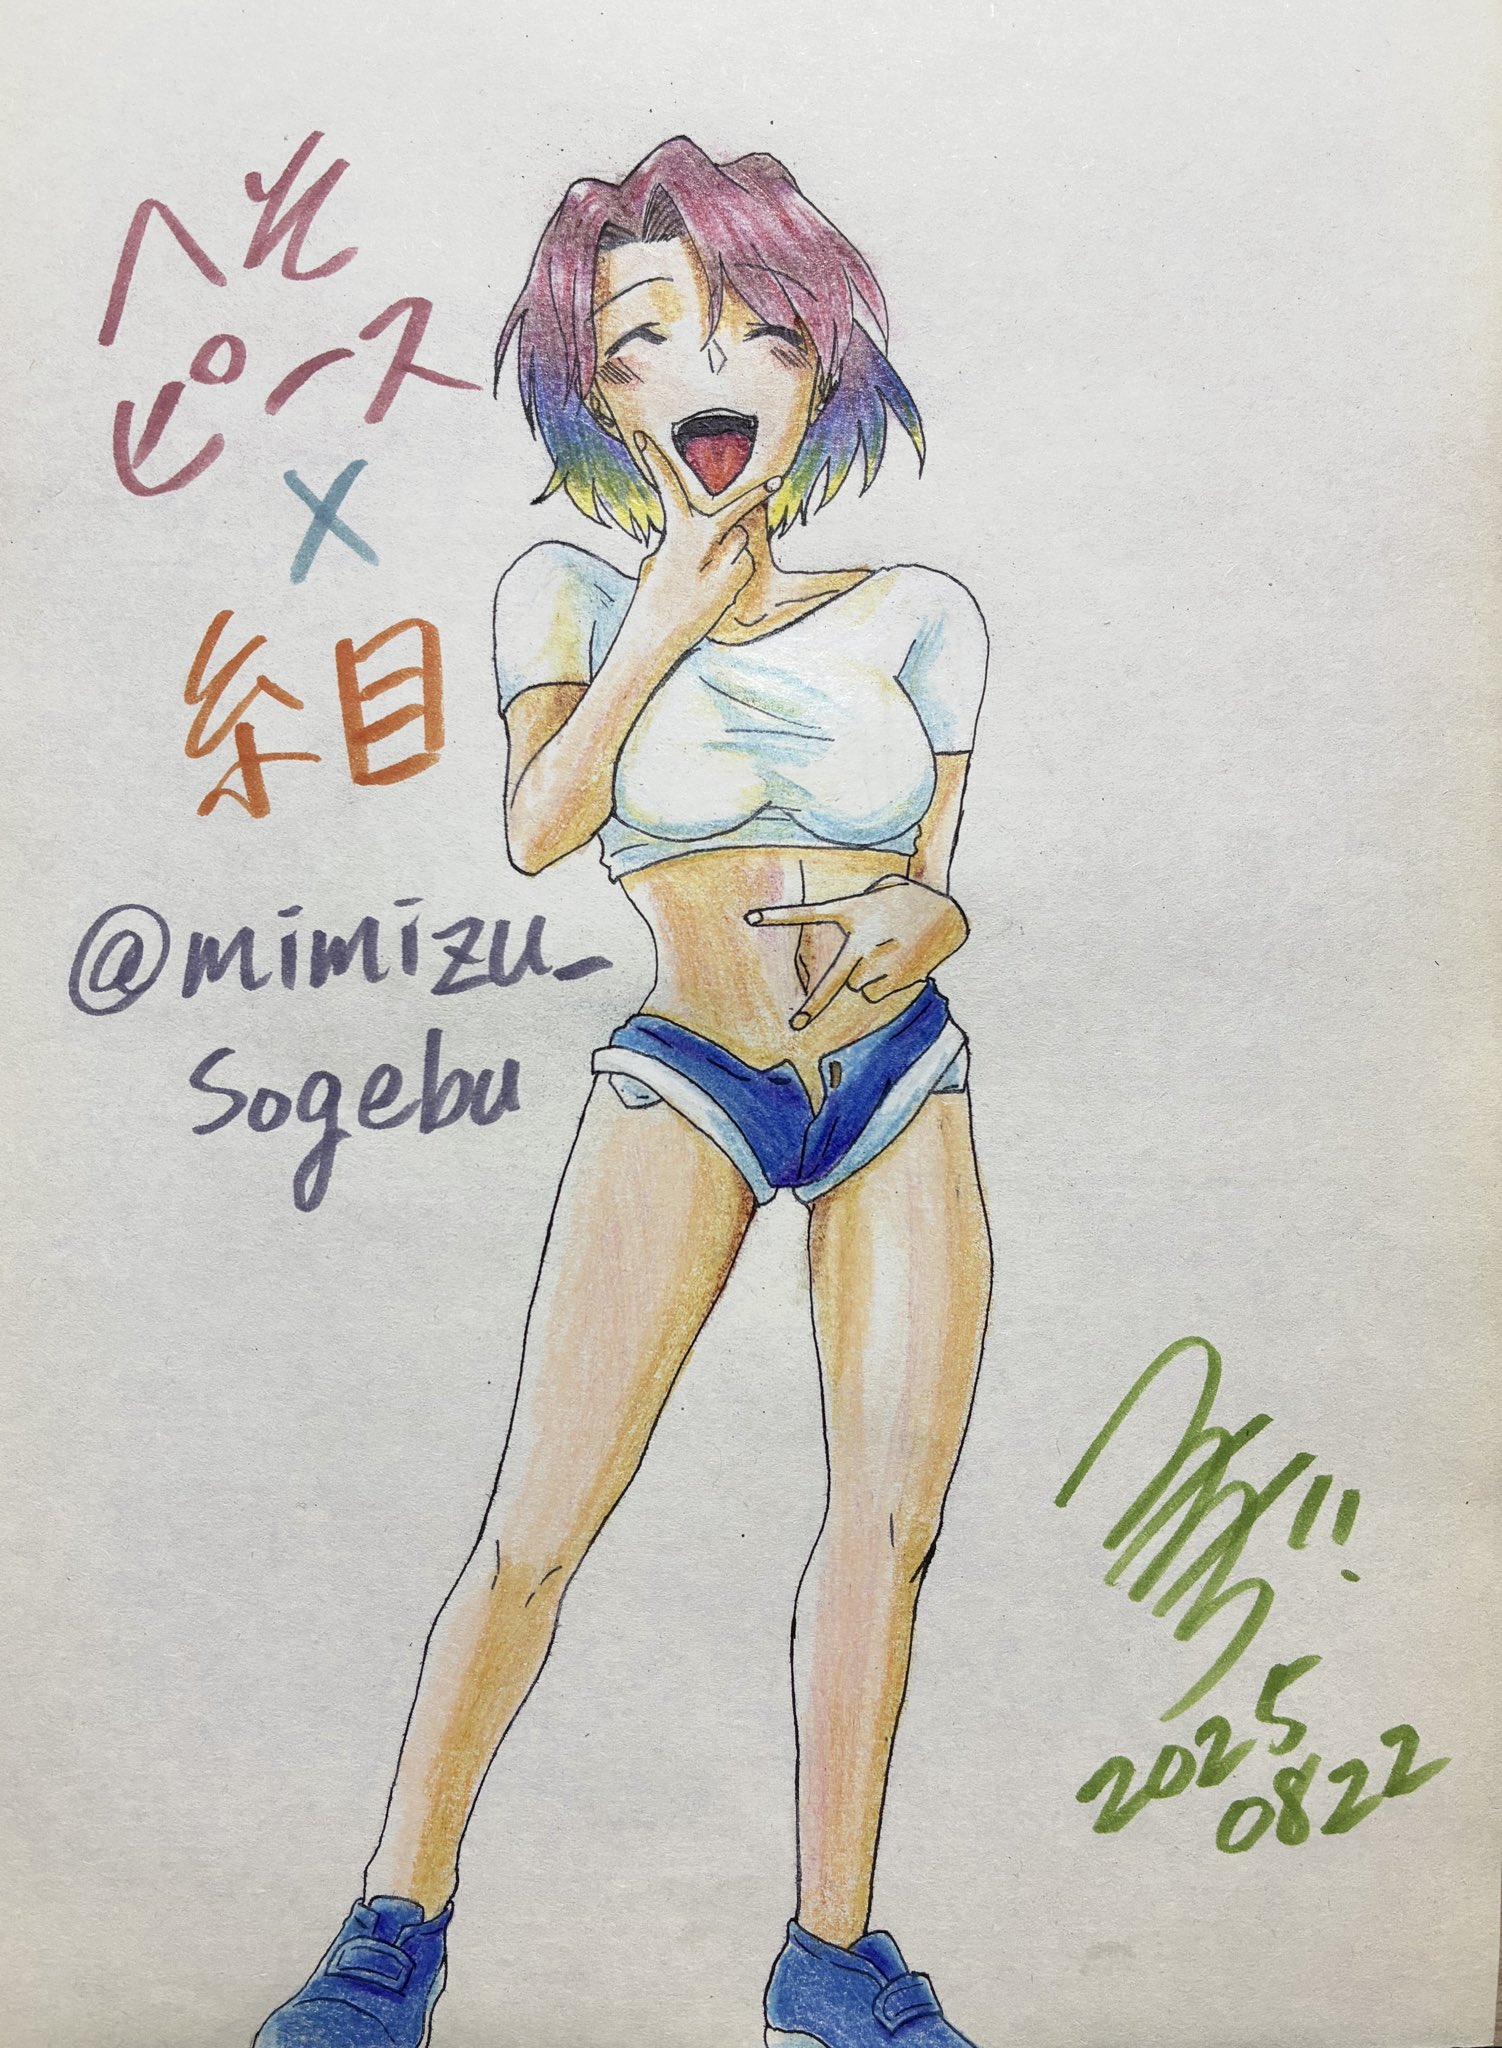 へそ
ピース
×
糸目
@mimizu_
sogebu
2025
0822